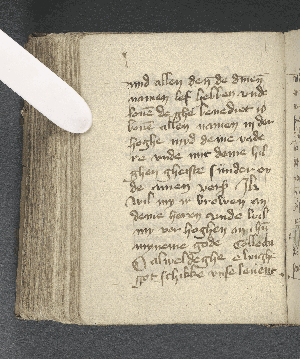 vnd allen den de dinen
namen lef hebben vnde
louen de ghe benediet is
bouen allen namen in der
hoghe myd deme vade
re vnde mit deme hil
ghen gheiste sunder en
de amen vers Ik
wil my vrowen an
deme heren vnde wil
my vor hoghen an ihu
myneme gode Collecta
O alweldeghe ewighe
got schikke vnse leuent